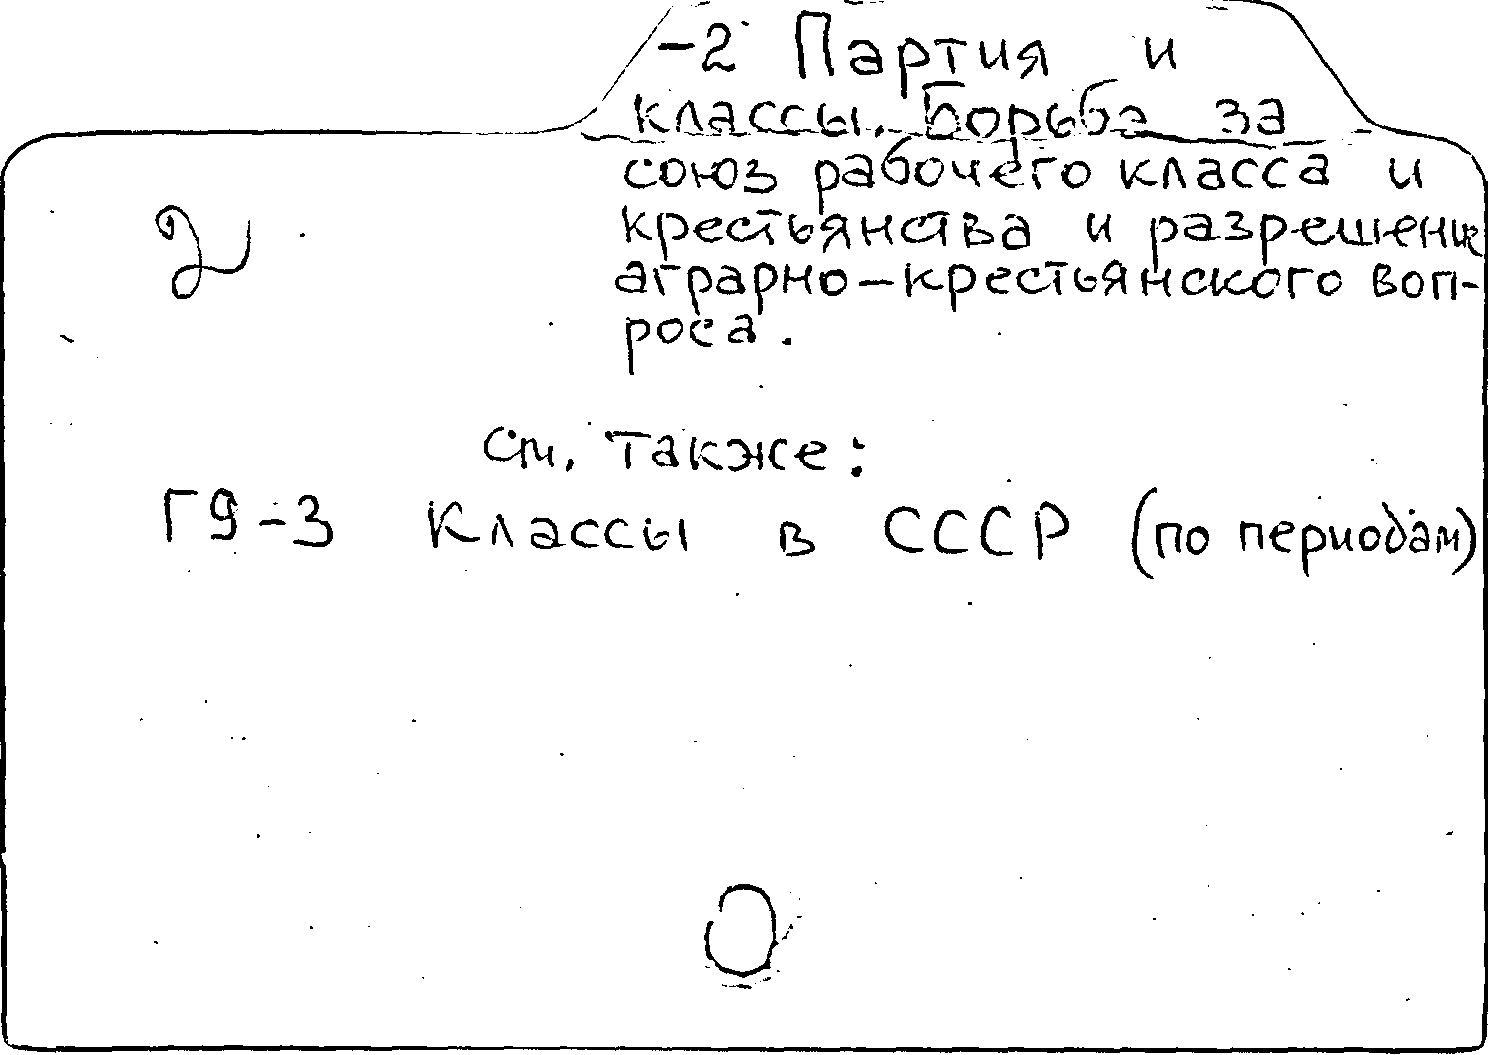 -2 Партия и
классы. Борьба за
союз рабочего класса и
крестьянства и разрешение
аграрно-крестьянского воп-
роса.
2
см. также:
Г9-3 Классы в СССР (по периодам)